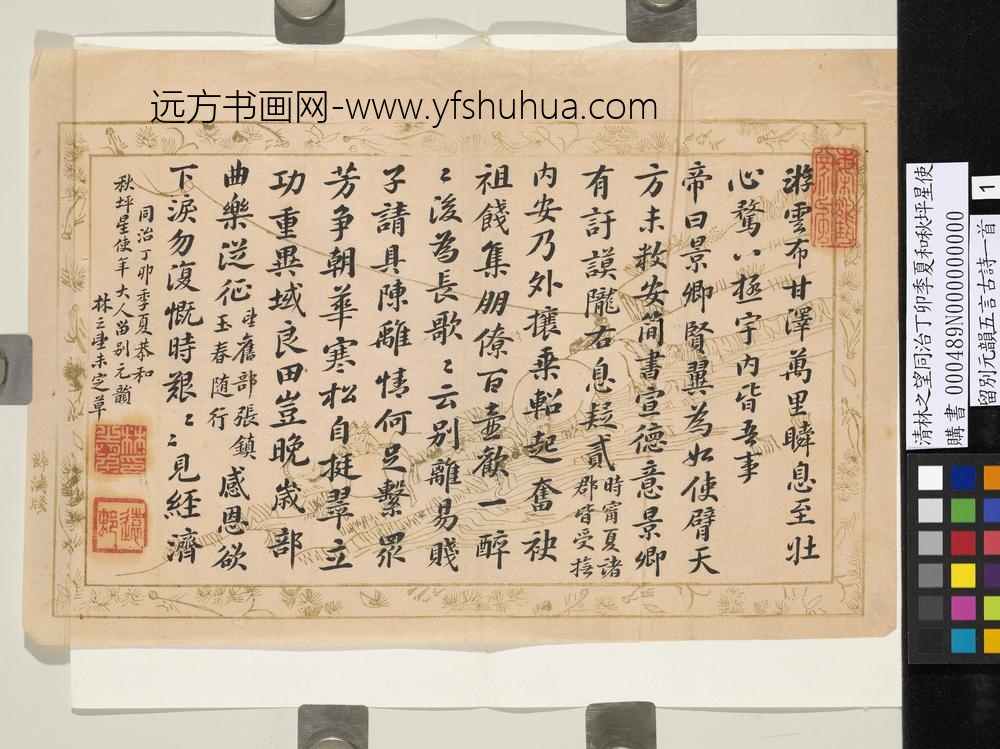 远方书画网-www.yfshuhua.com
游雲布甘澤萬里瞬息至壯
心騖八極宇内皆吾事
帝曰景卿賢翼為如使臂天
方未敉安簡書宣德意景卿
有訏謨隴右息疑貳時甯夏諸
郡皆受撫
内安乃外攘乘軺起奮袂
祖餞集朋僚百壺歡一醉
〻後為長歌〻云别離易賤
子請具陳離情何足繫眾
芳争朝華寒松自挺翠立
功重異域良田豈晚歲部
曲樂從征坐舊部張鎮
玉春随行感恩欲
下淚勿復慨時艱〻〻見經濟
同治丁卯季夏恭和
秋坪星使年大人留别元韻
林之望未定草
清林之望同治丁卯季夏和秋坪星使
留別元韻五言古詩一首
購書 000489N000000000
1